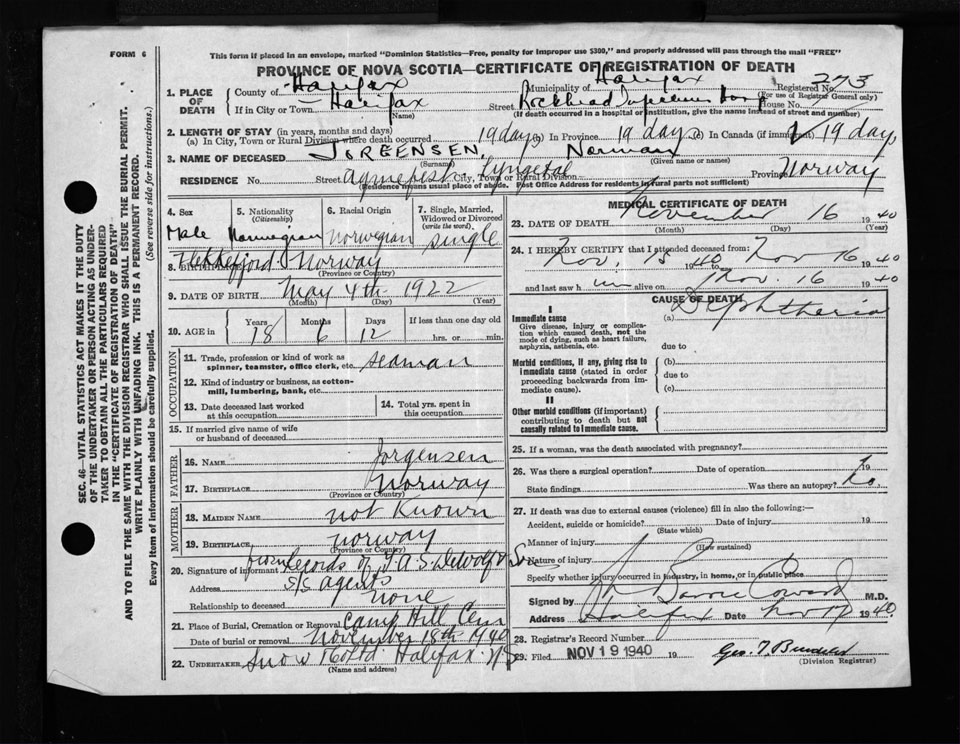 FORM 6
This form if placed in an envelope, marked "Dominion Statistics—Free, penalty for improper use $300," and properly addressed will pass through the mail "FREE"
PROVINCE OF NOVA SCOTIA—CERTIFICATE OF REGISTRATION OF DEATH
1. PLACE OF DEATH
County of Halifax
Municipality of Halifax
Registered No. 273
(For use of Registrar General only)
If in City or Town Halifax
(Name)
Street Rockhead Infectious Hosp House No.
(If death occurred in a hospital or institution, give the name instead of street and number)
2. LENGTH OF STAY (in years, months and days)
(a) In City, Town or Rural Division where death occurred 19 days (b) In Province 19 days (c) In Canada (if immigrant) 19 days
3. NAME OF DECEASED JORGENSEN, Norman
(Surname) (Given name or names)
RESIDENCE No. Street City, Town or Rural Division Province Norway
(Residence means usual place of abode. Post Office Address for residents in rural parts not sufficient)
4. Sex
Male
5. Nationality
(Citizenship)
Norwegian
6. Racial Origin
Norwegian
7. Single, Married, Widowed or Divorced
(write the word)
single
8. BIRTHPLACE Norway
(Province or Country)
9. DATE OF BIRTH May 4th 1922
(Month) (Day) (Year)
10. AGE in
Years Months Days If less than one day old
18 6 12 hrs. or min.
OCCUPATION
11. Trade, profession or kind of work as spinner, teamster, office clerk, etc. seaman
12. Kind of industry or business, as cotton-mill, lumbering, bank, etc.
13. Date deceased last worked at this occupation
14. Total yrs. spent in this occupation
15. If married give name of wife or husband of deceased
FATHER
16. NAME Jorgensen
17. BIRTHPLACE Norway
(Province or Country)
MOTHER
18. MAIDEN NAME not Known
19. BIRTHPLACE norway
(Province or Country)
20. Signature of informant from records of T.A.S. DeWolf & Son
Address s/s agents
Relationship to deceased none
21. Place of Burial, Cremation or Removal Camp Hill Cem
Date of burial or removal November 18th 1940
22. UNDERTAKER Snow & Co Ltd. Halifax N.S.
(Name and address)
MEDICAL CERTIFICATE OF DEATH
23. DATE OF DEATH November 16 1940
(Month) (Day)
24. I HEREBY CERTIFY that I attended deceased from:
Nov. 15 1940 Nov 16 1940
and last saw him alive on Nov. 16 1940
CAUSE OF DEATH
I
Immediate cause (a) Diphtheria
Give disease, injury or complication which caused death, not the mode of dying, such as heart failure, asphyxia, asthenia, etc.
due to
Morbid conditions, if any, giving rise to immediate cause (stated in order proceeding backwards from immediate cause).
(b)
due to
(c)
II
Other morbid conditions (if important) contributing to death but not causally related to immediate cause.
25. If a woman, was the death associated with pregnancy?
26. Was there a surgical operation? Date of operation 19
State findings Was there an autopsy? No.
27. If death was due to external causes (violence) fill in also the following:—
Accident, suicide or homicide? Date of injury 19
(State which)
Manner of injury
(How sustained)
Nature of injury
Specify whether injury occurred in industry, in home, or in public place
Signed by Barrie Coward M.D.
Halifax Date Nov 17 1940.
28. Registrar's Record Number
29. Filed NOV 19 1940 19
Geo. T.
(Division Registrar)
SEC. 46—VITAL STATISTICS ACT MAKES IT THE DUTY
OF THE UNDERTAKER OR PERSON ACTING AS UNDER-
TAKER TO OBTAIN ALL THE PARTICULARS REQUIRED
IN THE "CERTIFICATE OF REGISTRATION OF DEATH"
AND TO FILE THE SAME WITH THE DIVISION REGISTRAR WHO SHALL ISSUE THE BURIAL PERMIT.
WRITE PLAINLY WITH UNFADING INK. THIS IS A PERMANENT RECORD.
Every item of information should be carefully supplied. (See reverse side for instructions.)